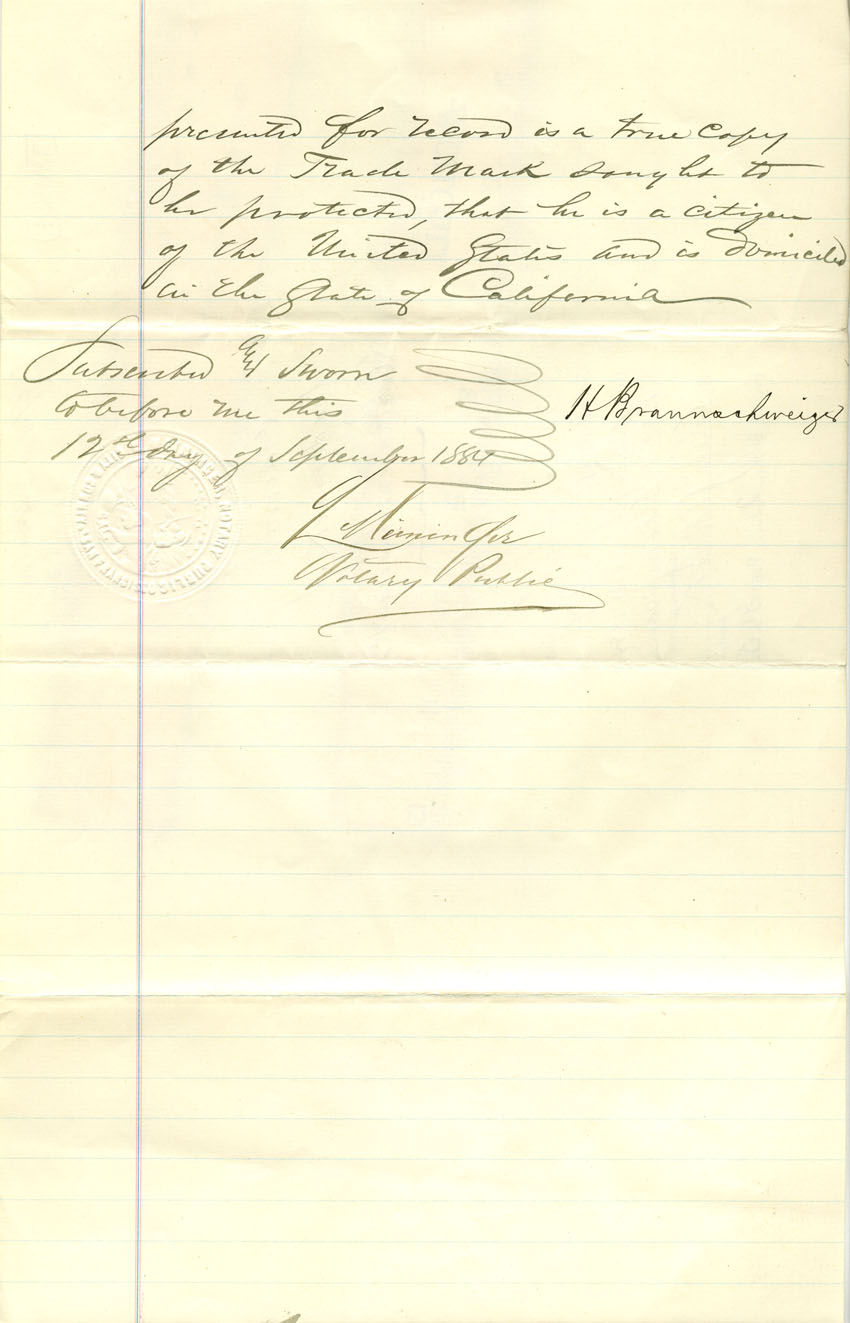 presented for record is a true copy
of the Trade Mark sought to
be protected, that he is a citizen
of the United States and is domiciled
in the State of California
Subscribed and Sworn
to before me this
H Braunschweiger
12th day of September 1884
L Meininger
Notary Public
NOTARY PUBLIC